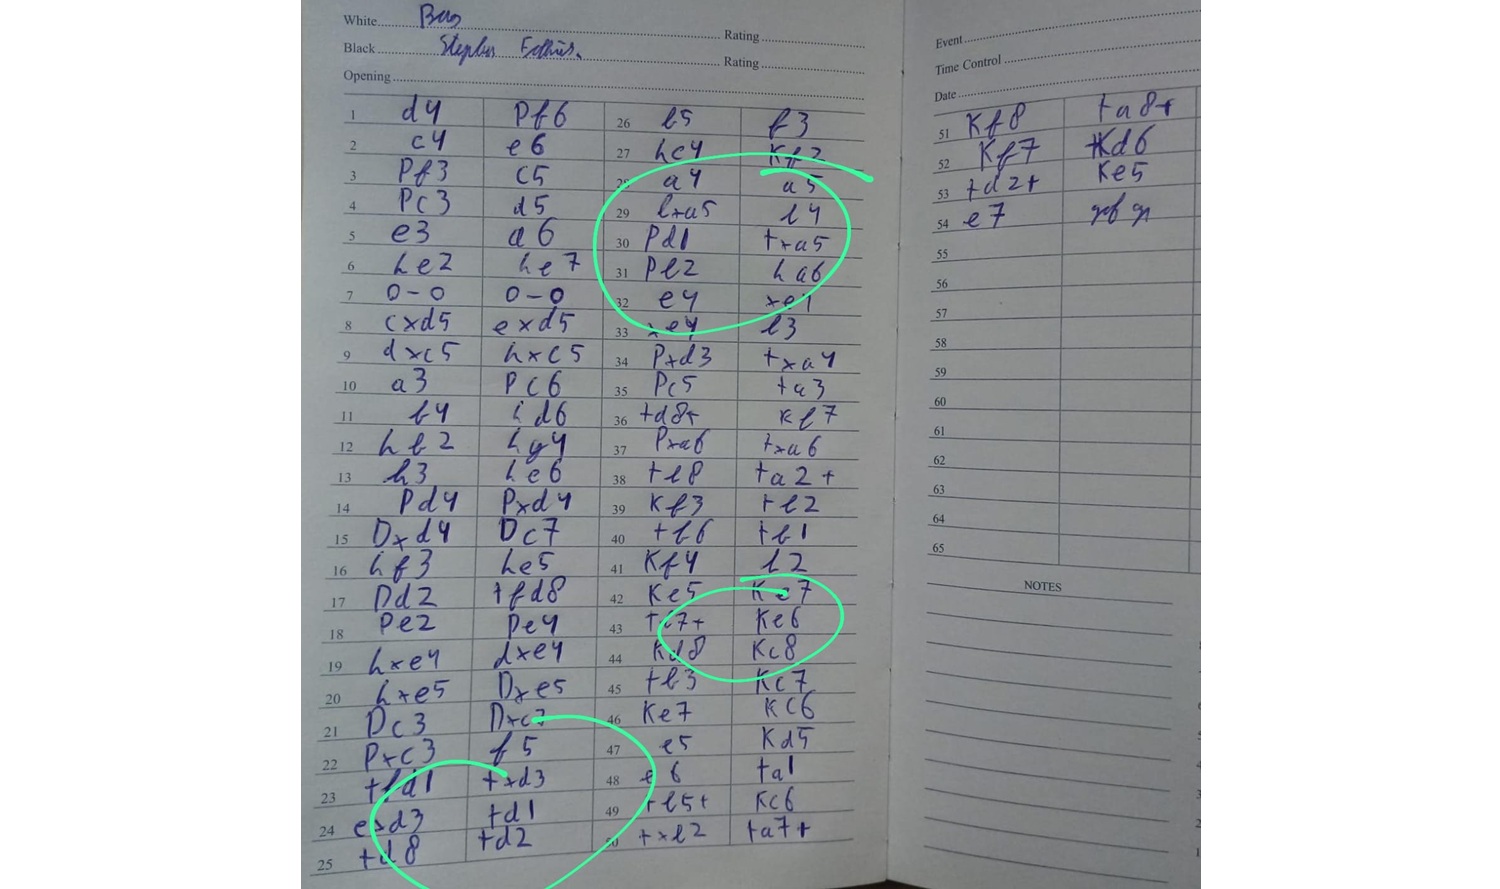 White Bas Rating
Black Stephen Rating
Opening
1 d4 Pf6
2 c4 e6
3 Pf3 c5
4 Pc3 d5
5 e3 a6
6 Le2 Le7
7 0-0 0-0
8 cxd5 exd5
9 dxc5 Lxc5
10 a3 Pc6
11 b4 Ld6
12 Lb2 Lg4
13 h3 Le6
14 Pd4 Pxd4
15 Dxd4 Dc7
16 Lf3 Le5
17 Dd2 tfd8
18 Pe2 Pe4
19 Lxe4 dxe4
20 Lxe5 Dxe5
21 Dc3 Dxc3
22 Pxc3 f5
23 tfd1 txd3
24 exd3 td1
25 td8 td2
26 b5 f3
27 Lc4 Kf2
28 a4 a5
29 bxa5 b4
30 Pd1 txa5
31 Pb2 La6
32 e4 xe4
33 xe4 b3
34 Pxd3 txa4
35 Pc5 ta3
36 td8+ Kf7
37 Pxa6 txa6
38 tb8 ta2+
39 Kf3 tb2
40 tb6 tb1
41 Kf4 b2
42 Ke5 Ke7
43 tb7+ Ke6
44 Kd8 Kc8
45 tb3 Kc7
46 Ke7 Kc6
47 e5 Kd5
48 e6 ta1
49 tb5+ Kc6
50 txb2 ta7+
Event
Time Control
Date
51 Kf8 ta8+
52 Kf7 Kd6
53 td2+ Ke5
54 e7
55
56
57
58
59
60
61
62
63
64
65
NOTES